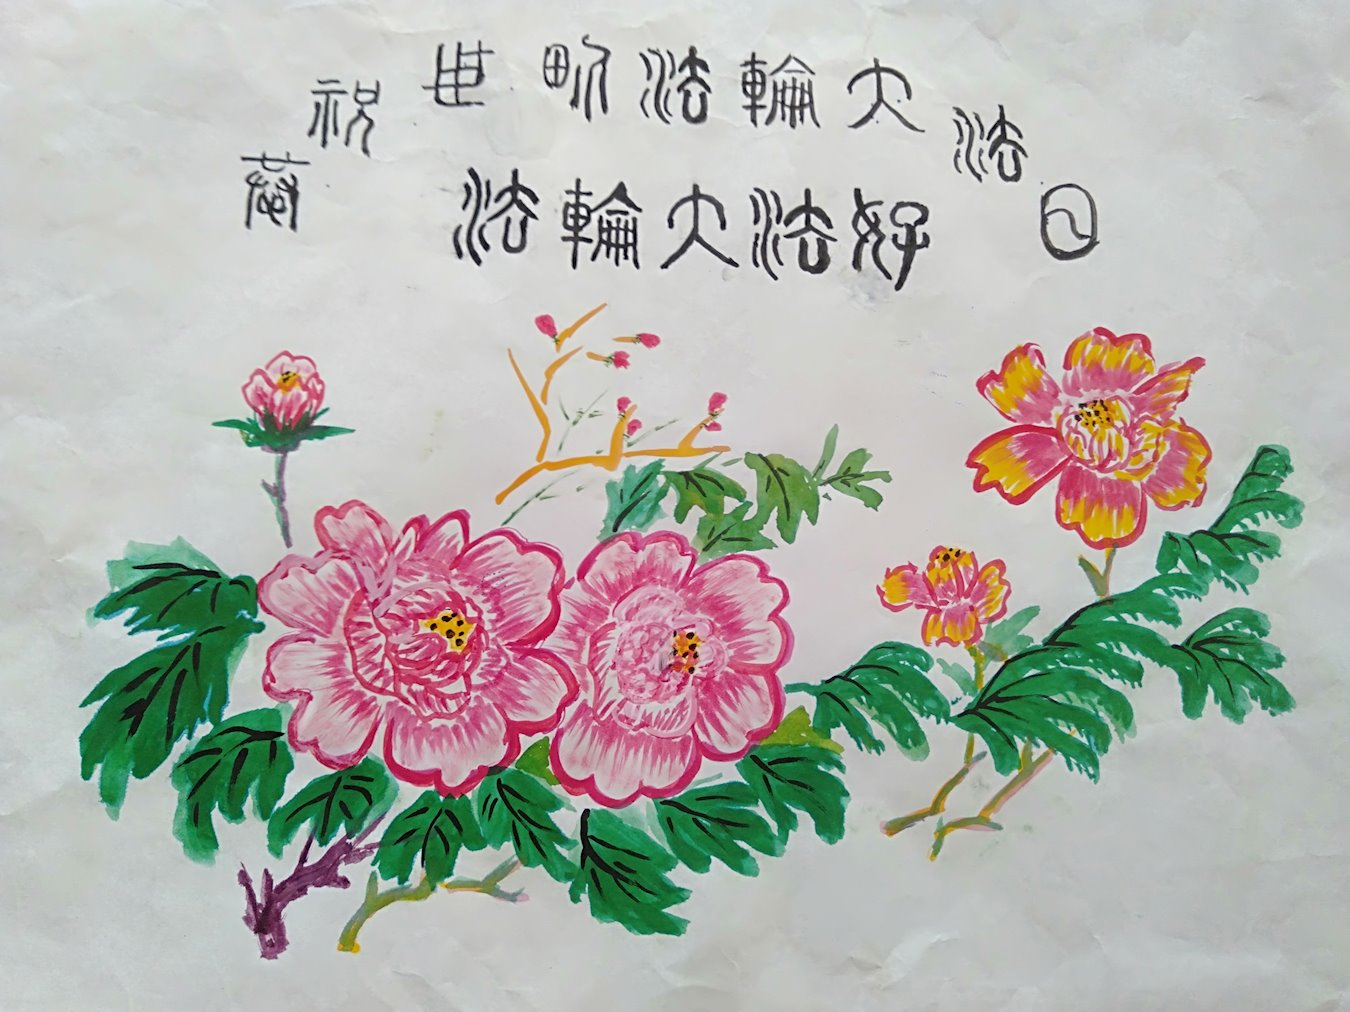 恭祝世界法輪大法日
法輪大法好